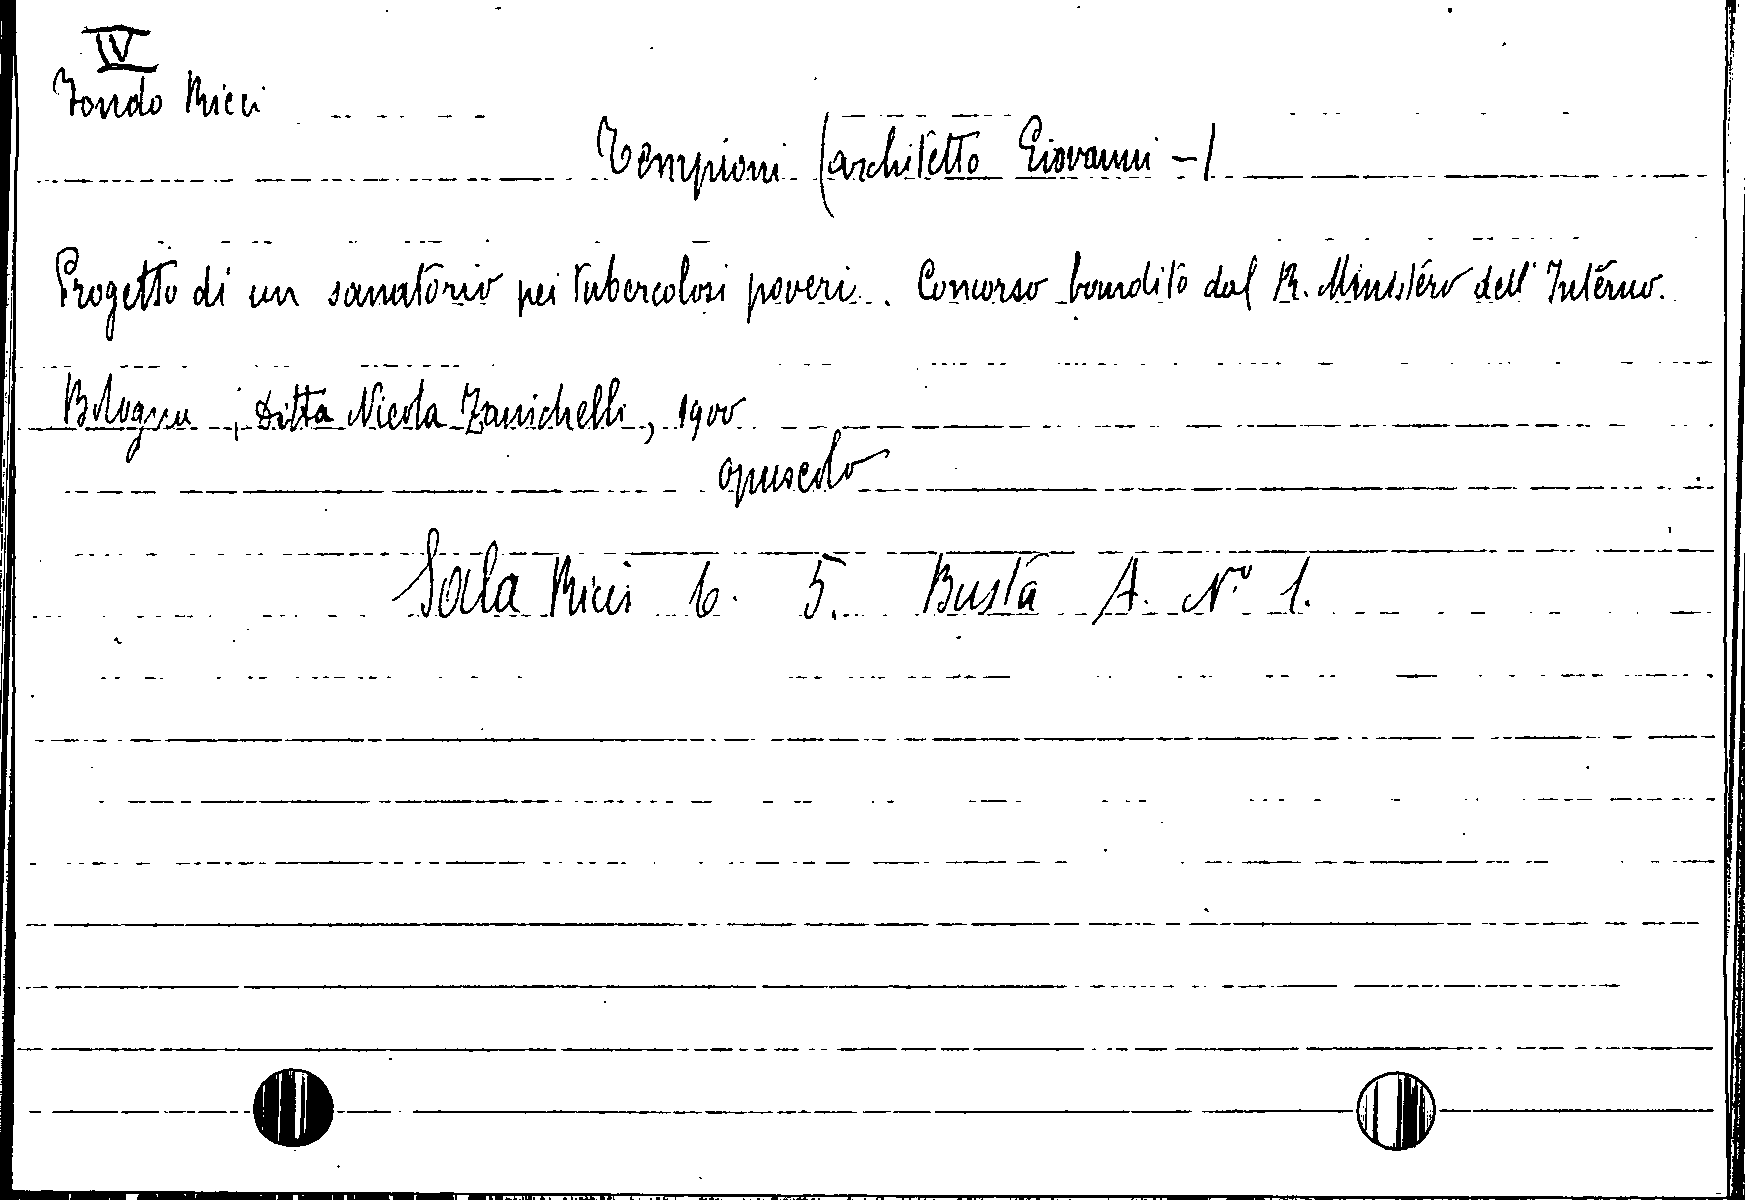 IV
Fondo Ricci
Tempioni (architetto Giovanni -)
Progetto di un sanatorio pei tubercolosi poveri. Concorso bandito dal R. Ministero dell'Interno.
Bologna, Ditta Nicola Zanichelli, 1900
opuscolo
Sala Ricci 6. 5. Busta A. N.º 1.